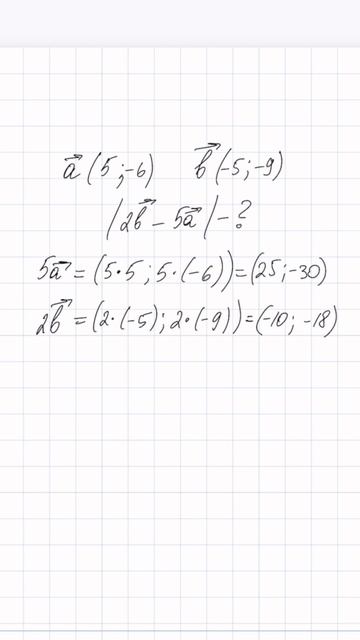 a⃗ (5;-6) b⃗ (-5;-9)
|2b⃗ - 5a⃗| - ?
5a⃗ = (5·5; 5·(-6)) = (25;-30)
2b⃗ = (2·(-5); 2·(-9)) = (-10; -18)